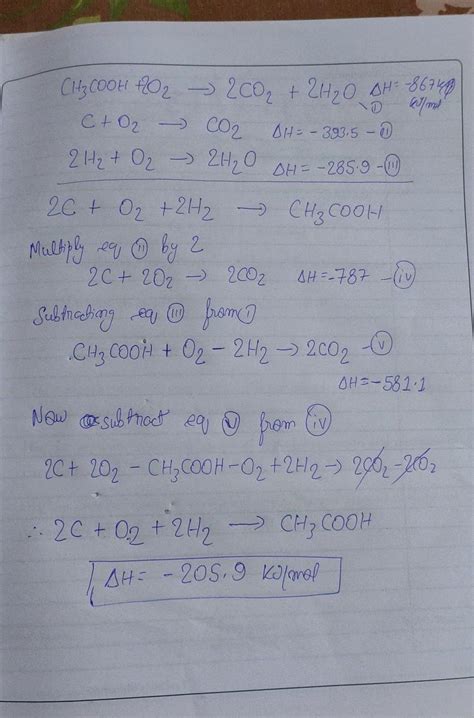 CH₃COOH + 2O₂ → 2CO₂ + 2H₂O ΔH = -867 kJ/mol - (i)
C + O₂ → CO₂ ΔH = - 393.5 - (ii)
2H₂ + O₂ → 2H₂O ΔH = -285.9 - (iii)
2C + O₂ + 2H₂ → CH₃COOH
Multiply eq (ii) by 2
2C + 2O₂ → 2CO₂ ΔH = -787 - (iv)
Subtracting eq (iii) from (i)
CH₃COOH + O₂ - 2H₂ → 2CO₂ - (v)
ΔH = - 581.1
Now subtract eq (v) from (iv)
2C + 2O₂ - CH₃COOH - O₂ + 2H₂ → 2CO₂ - 2CO₂
∴ 2C + O₂ + 2H₂ → CH₃COOH
ΔH = - 205.9 KJ/mol